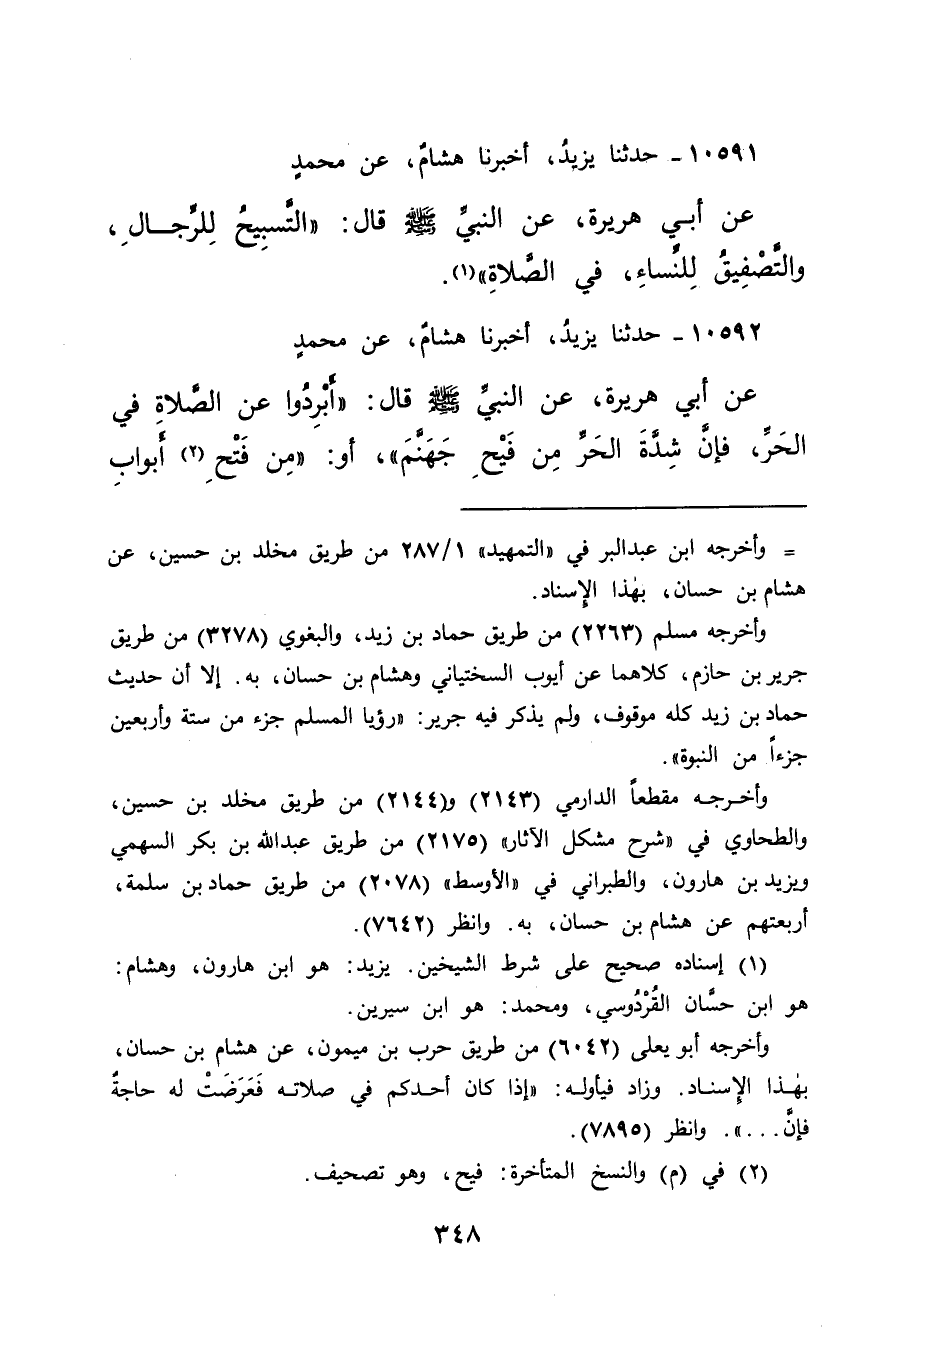 ١٠٥٩١ - حدثنا يزيدُ، أخبرنا هشامٌ، عن محمدٍ
عن أبي هريرة، عن النبيِّ ﷺ قال: «التَّسبِيحُ لِلرِّجالِ،
والتَّصْفِيقُ لِلنِّساءِ، في الصَّلاةِ»(١).
١٠٥٩٢ - حدثنا يزيدُ، أخبرنا هشامٌ، عن محمدٍ
عن أبي هريرة، عن النبيِّ ﷺ قال: «أَبْرِدُوا عن الصَّلاةِ في
الحَرِّ، فإنَّ شِدَّةَ الحَرِّ مِن فَيْحِ جَهَنَّمَ»، أو: «مِن فَتْحِ (٢) أَبوابِ
= وأخرجه ابن عبدالبر في «التمهيد» ٢٨٧/١ من طريق مخلد بن حسين، عن
هشام بن حسان، بهٰذا الإسناد.
وأخرجه مسلم (٢٢٦٣) من طريق حماد بن زيد، والبغوي (٣٢٧٨) من طريق
جرير بن حازم، كلاهما عن أيوب السختياني وهشام بن حسان، به. إلا أن حديث
حماد بن زيد كله موقوف، ولم يذكر فيه جرير: «رؤيا المسلم جزء من ستة وأربعين
جزءاً من النبوة».
وأخرجه مقطعاً الدارمي (٢١٤٣) و(٢١٤٤) من طريق مخلد بن حسين،
والطحاوي في «شرح مشكل الآثار» (٢١٧٥) من طريق عبدالله بن بكر السهمي
ويزيد بن هارون، والطبراني في «الأوسط» (٢٠٧٨) من طريق حماد بن سلمة،
أربعتهم عن هشام بن حسان، به. وانظر (٧٦٤٢).
(١) إسناده صحيح على شرط الشيخين. يزيد: هو ابن هارون، وهشام:
هو ابن حسَّان القُرْدُوسي، ومحمد: هو ابن سيرين.
وأخرجه أبو يعلى (٦٠٤٢) من طريق حرب بن ميمون، عن هشام بن حسان،
بهٰذا الإسناد. وزاد فيأوله: «إذا كان أحدكم في صلاته فَعَرَضَتْ له حاجةٌ
فإنَّ...». وانظر (٧٨٩٥).
(٢) في (م) والنسخ المتأخرة: فيح، وهو تصحيف.
٣٤٨